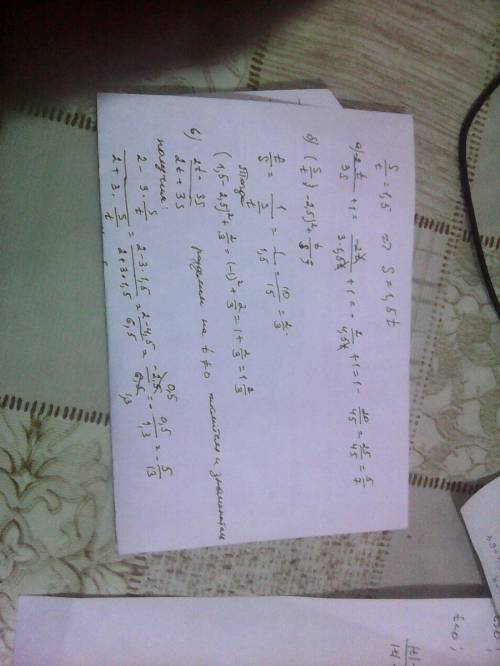 s/t = 1,5 ⇒ s = 1,5t
а) -2t/3s + 1 = -2t/3·1,5t + 1 = -2/4,5 + 1 = 1 - 20/45 = 25/45 = 5/7
б) (s/t - 2,5)² + t/s
t/s = 1/(s/t) = 1/1,5 = 10/15 = 2/3.
Тогда
(1,5-2,5)² + 2/3 = (-1)² + 2/3 = 1 + 2/3 = 1 2/3
в) 2t - 3s/2t + 3s разделим на t≠0 числитель и знаменатель
получим:
2 - 3·s/t/2 + 3·s/t = 2-3·1,5/2+3·1,5 = 2-4,5/6,5 = -2,5/6,5 = - 0,5/1,3 = - 5/13
t<0;